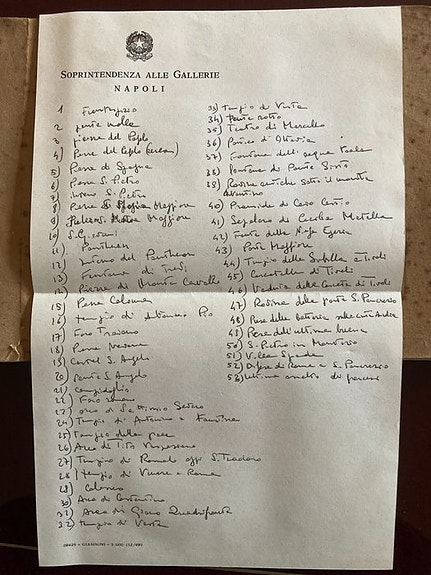 SOPRINTENDENZA ALLE GALLERIE
NAPOLI
1 Frontespizio
2 ponte molle
3) piazza del Popolo
4) Piazza del Popolo
5) Piazza di Spagna
6) Piazza S. Pietro
7) Interno S. Pietro
8) Maggiore
9) Maggiore
10) S. Giovanni
11) Pantheon
12) Interno del Pantheon
13) Fontana di Trevi
14) Piazza di Monte Cavallo
15) Piazza Colonna
16) tempio di Antonino Pio
17) Foro Traiano
18) Piazza Navona
19) Castel S. Angelo
20) Ponte S. Angelo
21) Campidoglio
22) Foro romano
23) arco di Settimio Severo
24) Tempio di Antonino e Faustina
25) Tempio della pace
26) Arco di Tito Vespasiano
27) Tempio di Romolo oggi S. Teodoro
28) tempio di Venere e Roma
29) Colosseo
30) Arco di Costantino
31) Arco di Giano Quadrifronte
32) tempio di Vesta
33) Tempio di Vesta
34) Ponte rotto
35) Teatro di Marcello
36) Portico d'Ottavia
37) Fontana dell'acqua Paola
38) Fontana di Ponte Sisto
39) Rovine antiche sotto il monte
Aventino
40) Piramide di Caio Cestio
41) Sepolcro di Cecilia Metella
42) Fonte della Ninfa Egeria
43) Porta Maggiore
44) Tempio della Sibilla a Tivoli
45) Cascatelle di Tivoli
46) Veduta delle Cascate di Tivoli
47) Rovina della porta S. Pancrazio
48) della batteria
49) dell'ultima
50) S. Pietro in Montorio
51) Villa Spada
52) Difesa di Roma a S. Pancrazio
53) ultimo